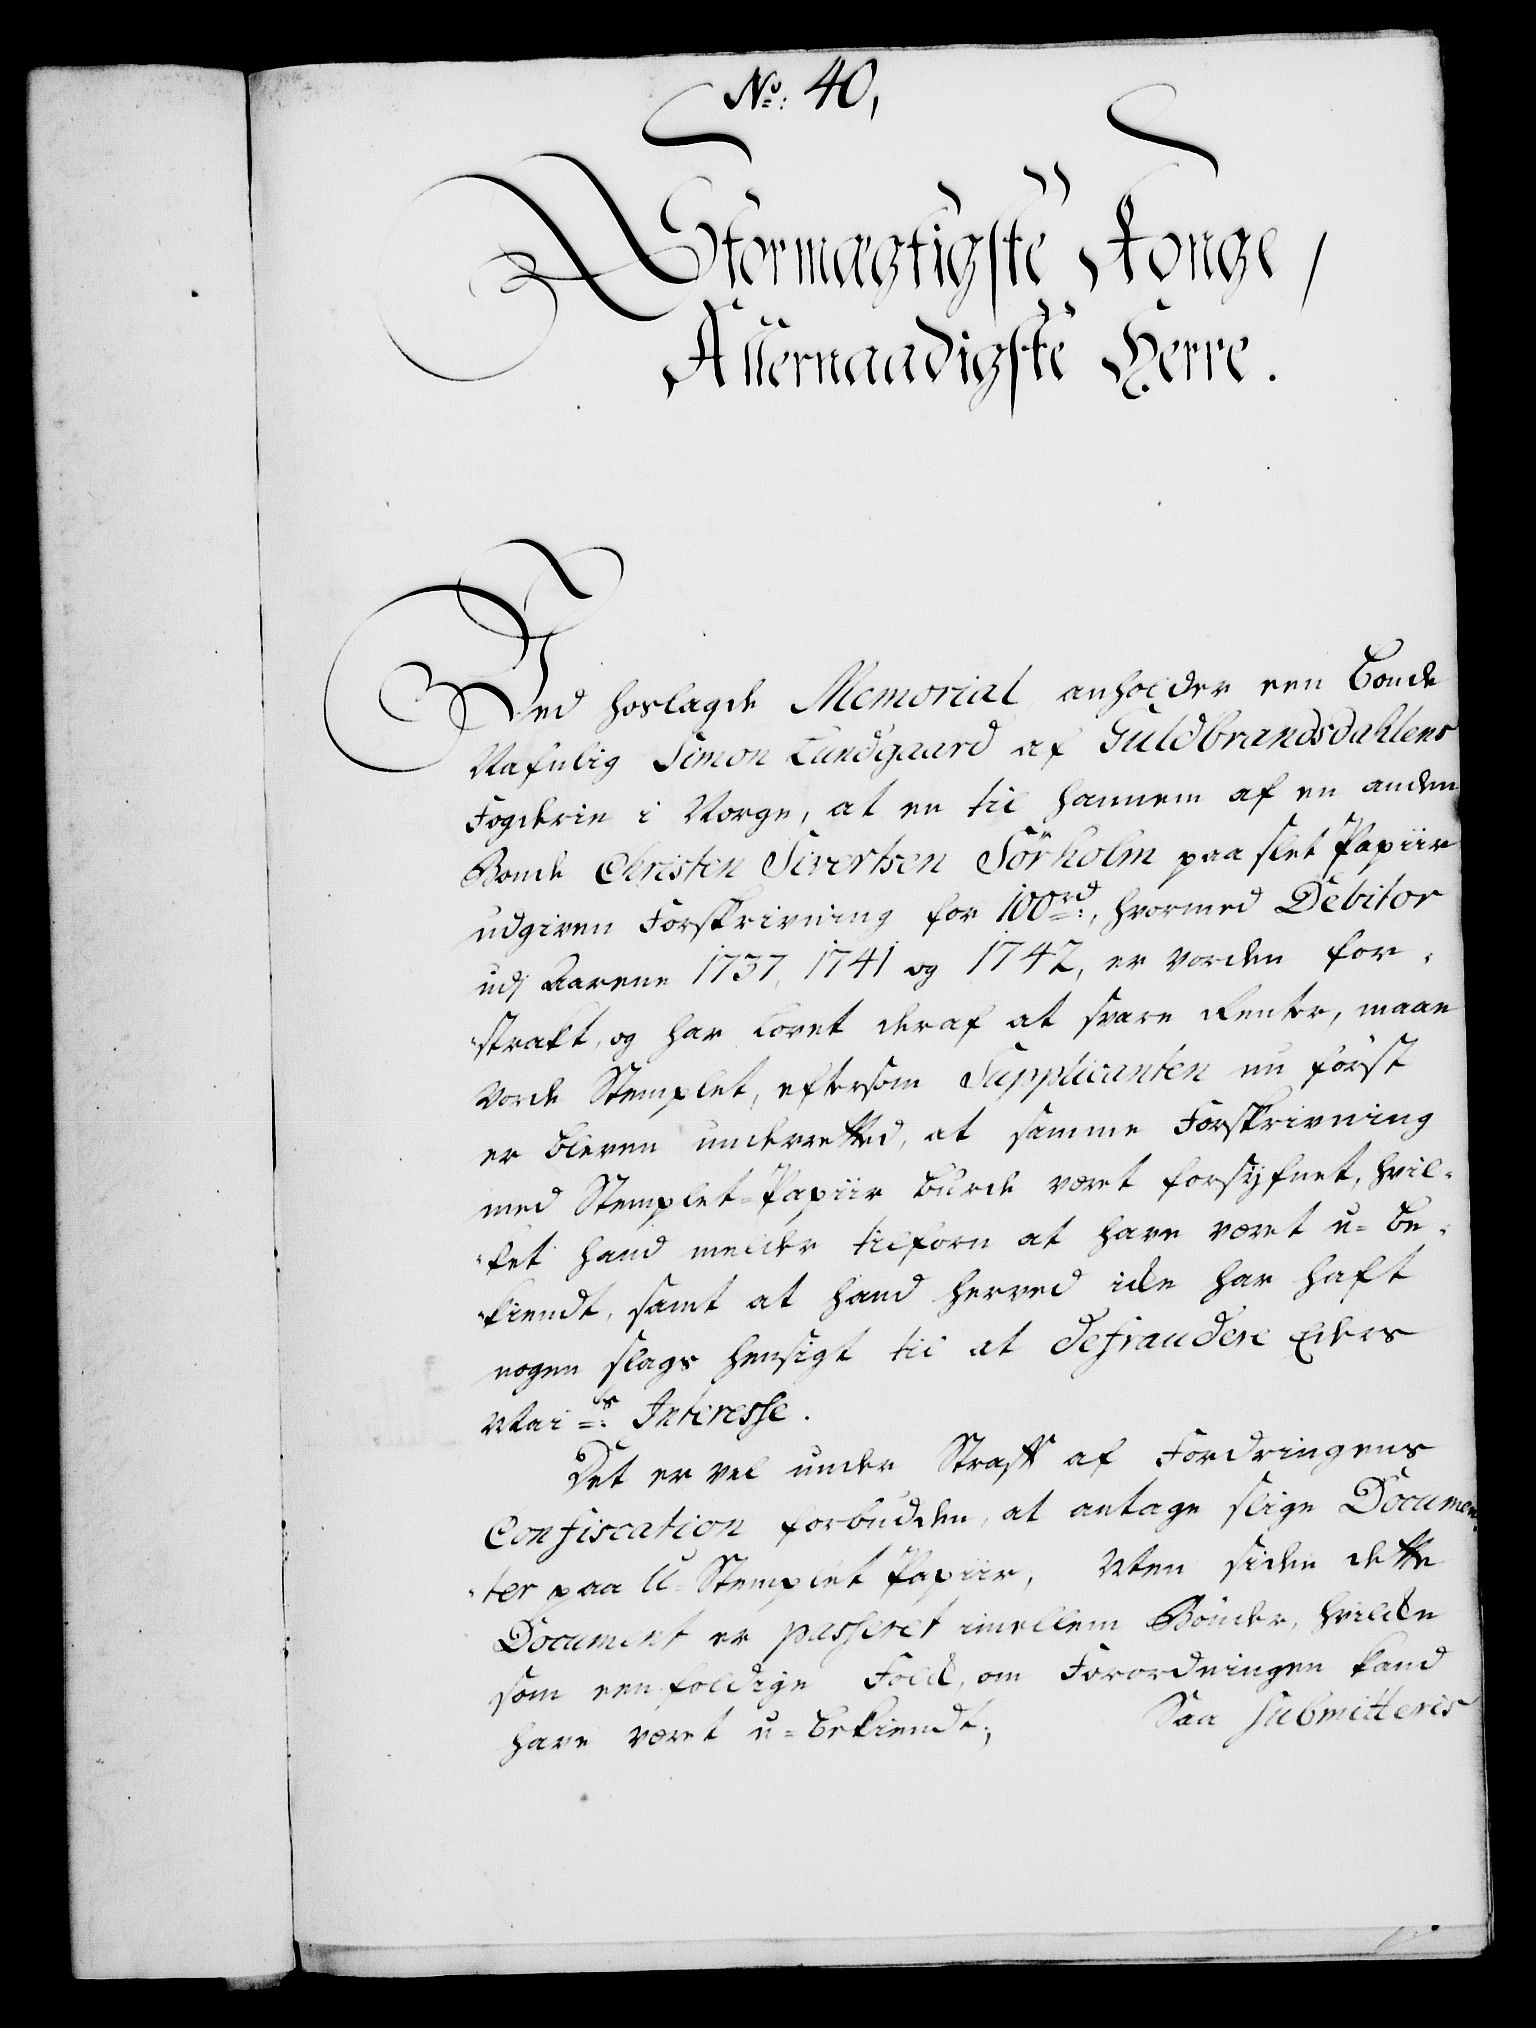 No: 40,
Stormægtigste Konge,
Allernaadigste Herre.
Ved hoslagde Memorial anholder een Bonde
Nafnlig Simon Lundgaard af Guldbrandsdahlens
Fogderie i Norge, at en til hannem af en anden
Bonde Christen Sivertsen Sörholm paa slet Papiir
udgiven Forskrivning for 100 rd:, hvormed Debitor
udj Aarene 1737, 1741 og 1742, er vorden for-
strakt, og har lovet deraf at svare Renter, maae
vorde Stemplet, eftersom Supplicanten nu först
er bleven underretted, at samme Forskrivning
med Stemplet-Papiir burde været forsÿfnet, hvil-
ket hand melder tilforn at have været u-be-
kiendt, samt at hand herved icke har haft
nogen slags hensigt til at defraudere Eders
Mais: Interesse.
Det er vel under Straff af Fordringens
Confiscation forbudden, at antage slige Documen-
ter paa U-Stemplet Papiir, Men siden dette
Document er passeret imellem Bönder, hvilcke
som eenfoldige Folck, om Forordningen kand
have været u-bekiendt;
Saa submitteris